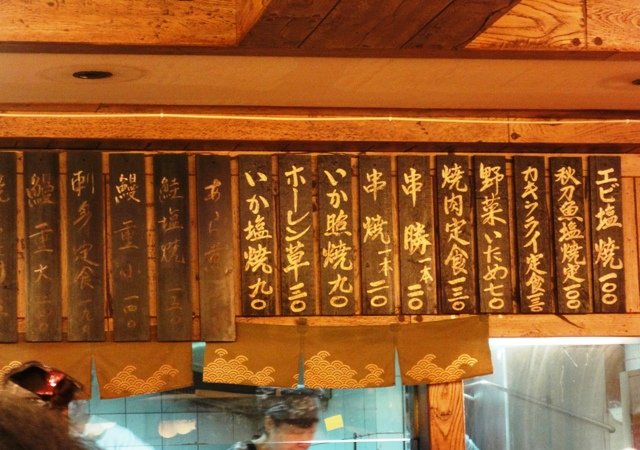 エビ塩焼一〇〇
秋刀魚塩焼定一〇〇
カキフライ定食
野菜いため七〇
焼肉定食一三〇
串勝一本二〇
串焼一本二〇
いか照焼九〇
ホーレン草三〇
いか塩焼九〇
あら煮
鮭塩焼
鰻重小一四〇
刺身定食
鰻重大